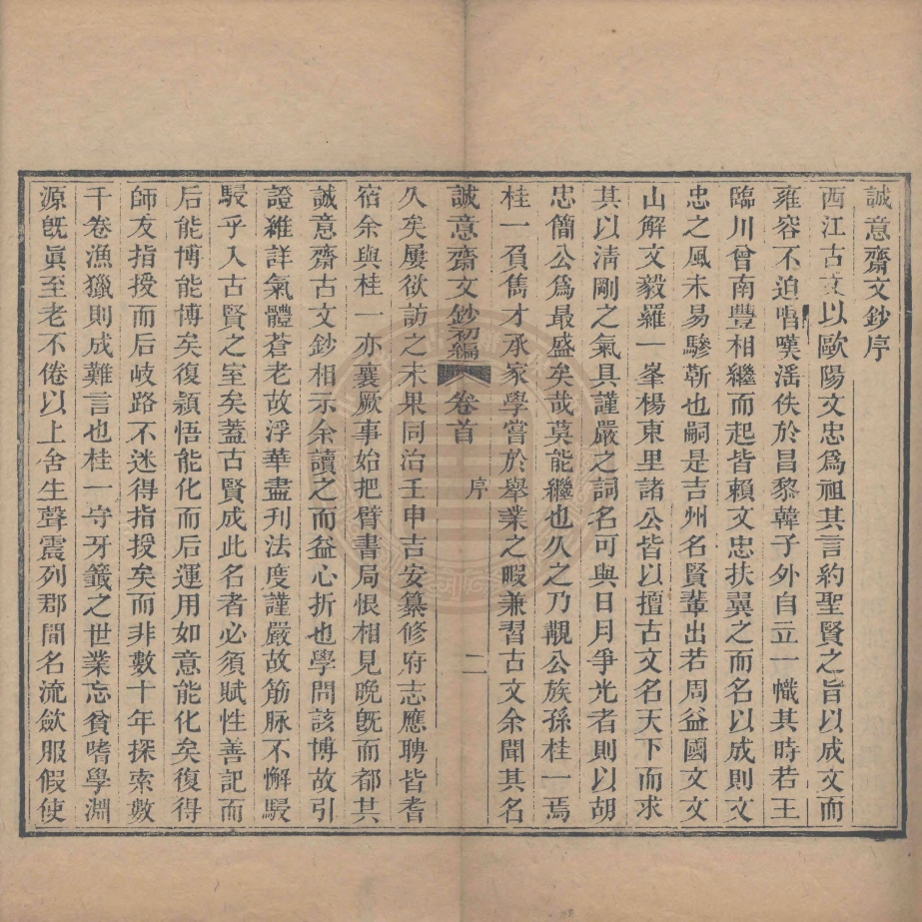 誠意齋文鈔序
西江古文以歐陽文忠爲祖其言約聖賢之旨以成文而
雍容不迫唱嘆滛佚於昌黎韓子外自立一幟其時若王
臨川曾南豐相繼而起皆賴文忠扶翼之而名以成則文
忠之風未易驂靳也嗣是吉州名賢輩出若周益國文文
山解文毅羅一峯楊東里諸公皆以擅古文名天下而求
其以清剛之氣具謹嚴之詞名可與日月爭光者則以胡
忠簡公爲最盛矣哉莫能繼也久之乃覯公族孫桂一焉
桂一負雋才承家學嘗於舉業之暇兼習古文余聞其名
誠意齋文鈔初編 卷首 序 二
久矣屢欲訪之未果同治壬申吉安纂修府志應聘皆耆
宿余與桂一亦襄厥事始把臂書局恨相見晚旣而都其
誠意齋古文鈔相示余讀之而益心折也學問該博故引
證維詳氣體蒼老故浮華盡刊法度謹嚴故筋脉不懈駸
駸乎入古賢之室矣蓋古賢成此名者必須賦性善記而
后能博能博矣復穎悟能化而后運用如意能化矣復得
師友指授而后岐路不迷得指授矣而非數十年探索數
千卷漁獵則成難言也桂一守牙籤之世業忘貧嗜學淵
源旣眞至老不倦以上舍生聲震列郡間名流歛服假使